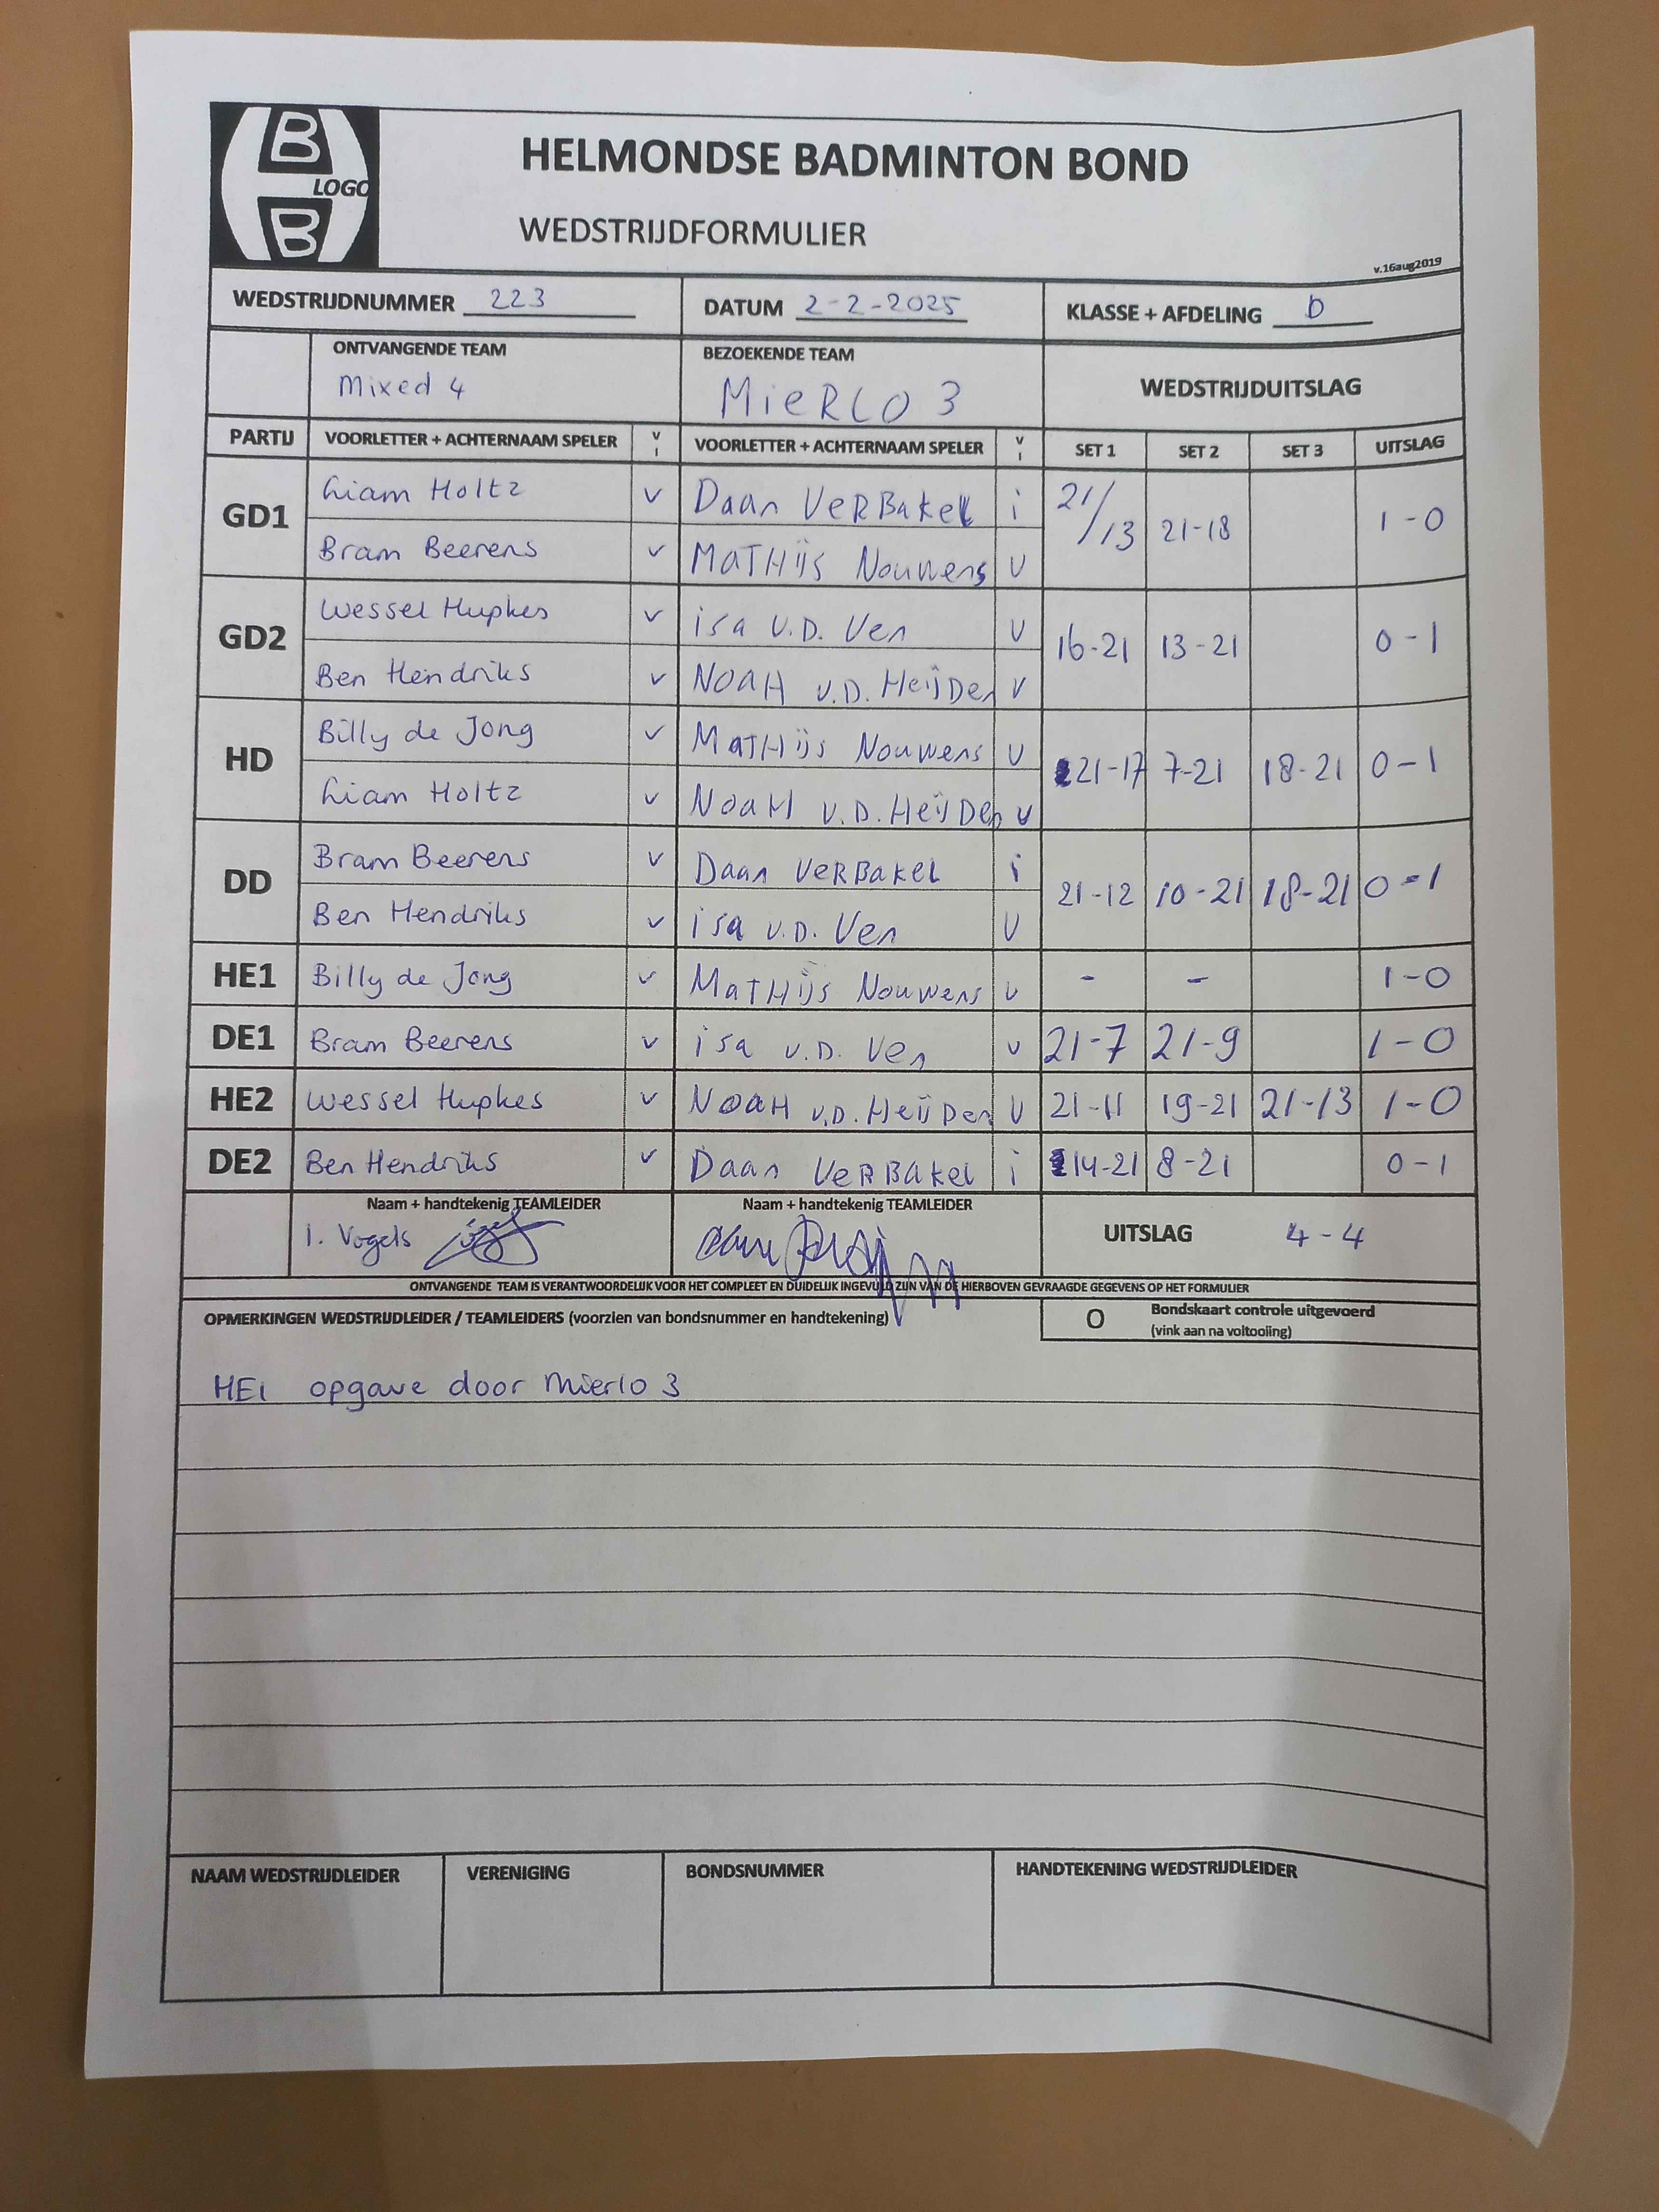 B
LOGO
B
HELMONDSE BADMINTON BOND
WEDSTRIJDFORMULIER
v.16aug2019
WEDSTRIJDNUMMER 223 DATUM 2-2-2025 KLASSE + AFDELING D
ONTVANGENDE TEAM BEZOEKENDE TEAM WEDSTRIJDUITSLAG
Mixed 4 MieRLO 3
PARTIJ VOORLETTER + ACHTERNAAM SPELER V I VOORLETTER + ACHTERNAAM SPELER V I SET 1 SET 2 SET 3 UITSLAG
GD1 Liam Holtz v Daan VeRBakel i 21/13 21-18 1-0
Bram Beerens v MaTHijs Nouwens v
GD2 Wessel Hupkes v isa v.D. Ven v 16-21 13-21 0-1
Ben Hendriks v NOaH v.D. HeijDen v
HD Billy de Jong v MaTHijs Nouwens v 21-17 7-21 18-21 0-1
Liam Holtz v NOaH v.D. HeijDen v
DD Bram Beerens v Daan VeRBakel i 21-12 10-21 18-21 0-1
Ben Hendriks v isa v.D. Ven v
HE1 Billy de Jong v MaTHijs Nouwens v - - 1-0
DE1 Bram Beerens v isa v.D. Ven v 21-7 21-9 1-0
HE2 Wessel Hupkes v NOaH v.D. HeijDen v 21-11 19-21 21-13 1-0
DE2 Ben Hendriks v Daan VeRBakel i 14-21 8-21 0-1
Naam + handtekenig TEAMLEIDER Naam + handtekenig TEAMLEIDER UITSLAG 4-4
I. Vogels
ONTVANGENDE TEAM IS VERANTWOORDELIJK VOOR HET COMPLEET EN DUIDELIJK INGEVULD ZIJN VAN DE HIERBOVEN GEVRAAGDE GEGEVENS OP HET FORMULIER
OPMERKINGEN WEDSTRIJDLEIDER / TEAMLEIDERS (voorzien van bondsnummer en handtekening) O Bondskaart controle uitgevoerd
(vink aan na voltooiing)
HE1 opgave door Mierlo 3
NAAM WEDSTRIJDLEIDER VERENIGING BONDSNUMMER HANDTEKENING WEDSTRIJDLEIDER